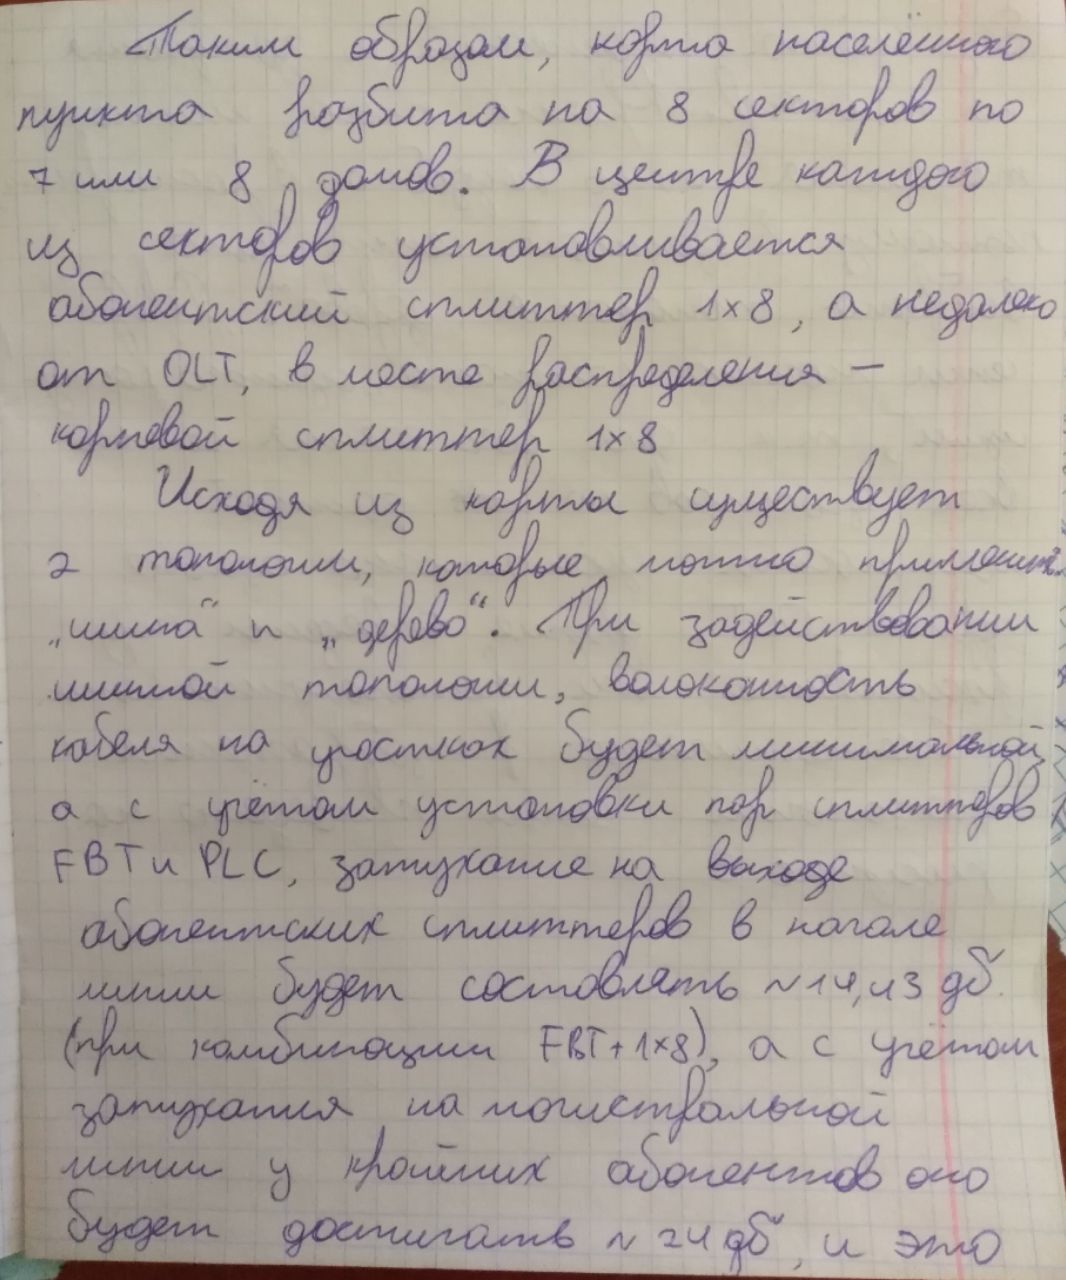 Таким образом, карта населённого
пункта разбита на 8 секторов по
7 или 8 домов. В центре каждого
из секторов устанавливается
абонентский сплиттер 1x8, а недалеко
от OLT, в месте распределения –
корневой сплиттер 1x8
Исходя из карты существует
2 топологии, которые можно применить:
„шина“ и „дерево“. При задействовании
шинной топологии, волоконность
кабеля на участках будет минимальной,
а с учётом установки пар сплиттеров
FBT и PLC, затухание на выходе
абонентских сплиттеров в начале
линии будет составлять ~14,43 дб
(при комбинации FBT+1x8), а с учётом
затухания на магистральной
линии у крайних абонентов оно
будет достигать ~24 дб, и это